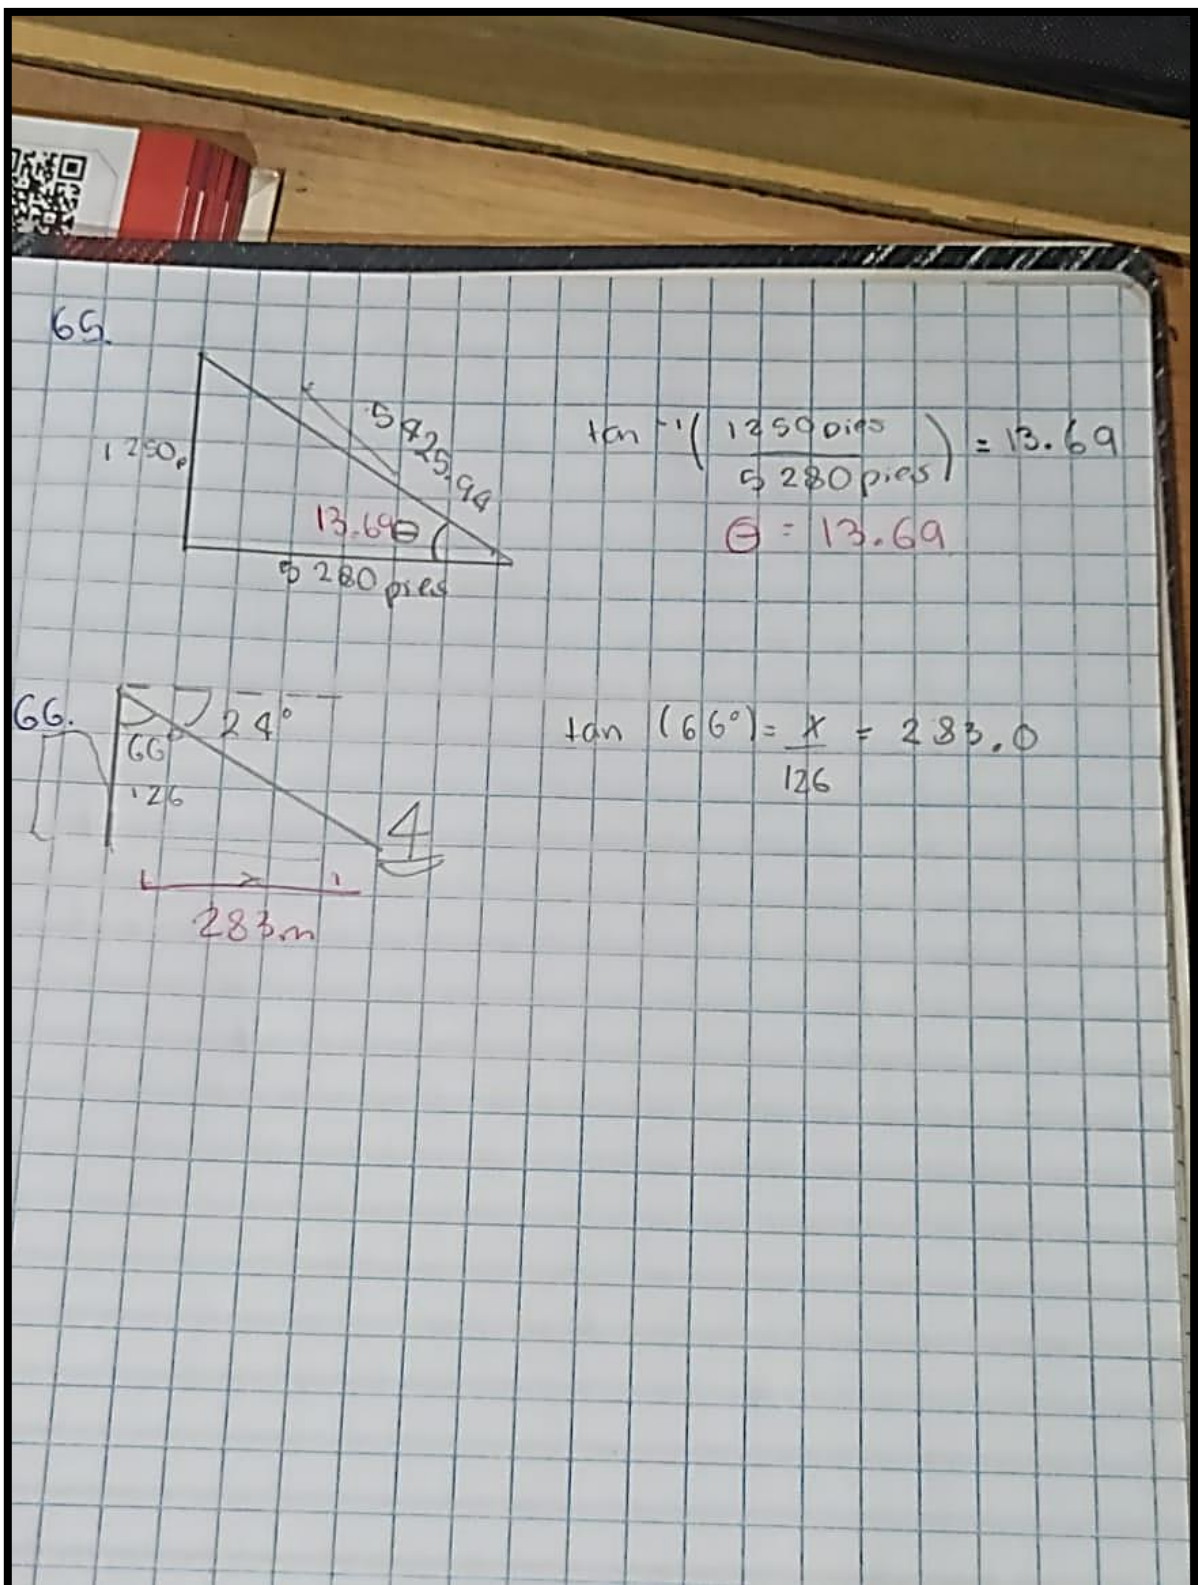 65.
1250p
5425.94
13.69 θ
5280 pies
tan⁻¹ ( 1250 pies / 5280 pies ) = 13.69
θ = 13.69
66.
24°
66°
126
283m
tan (66°) = x / 126 = 283.0